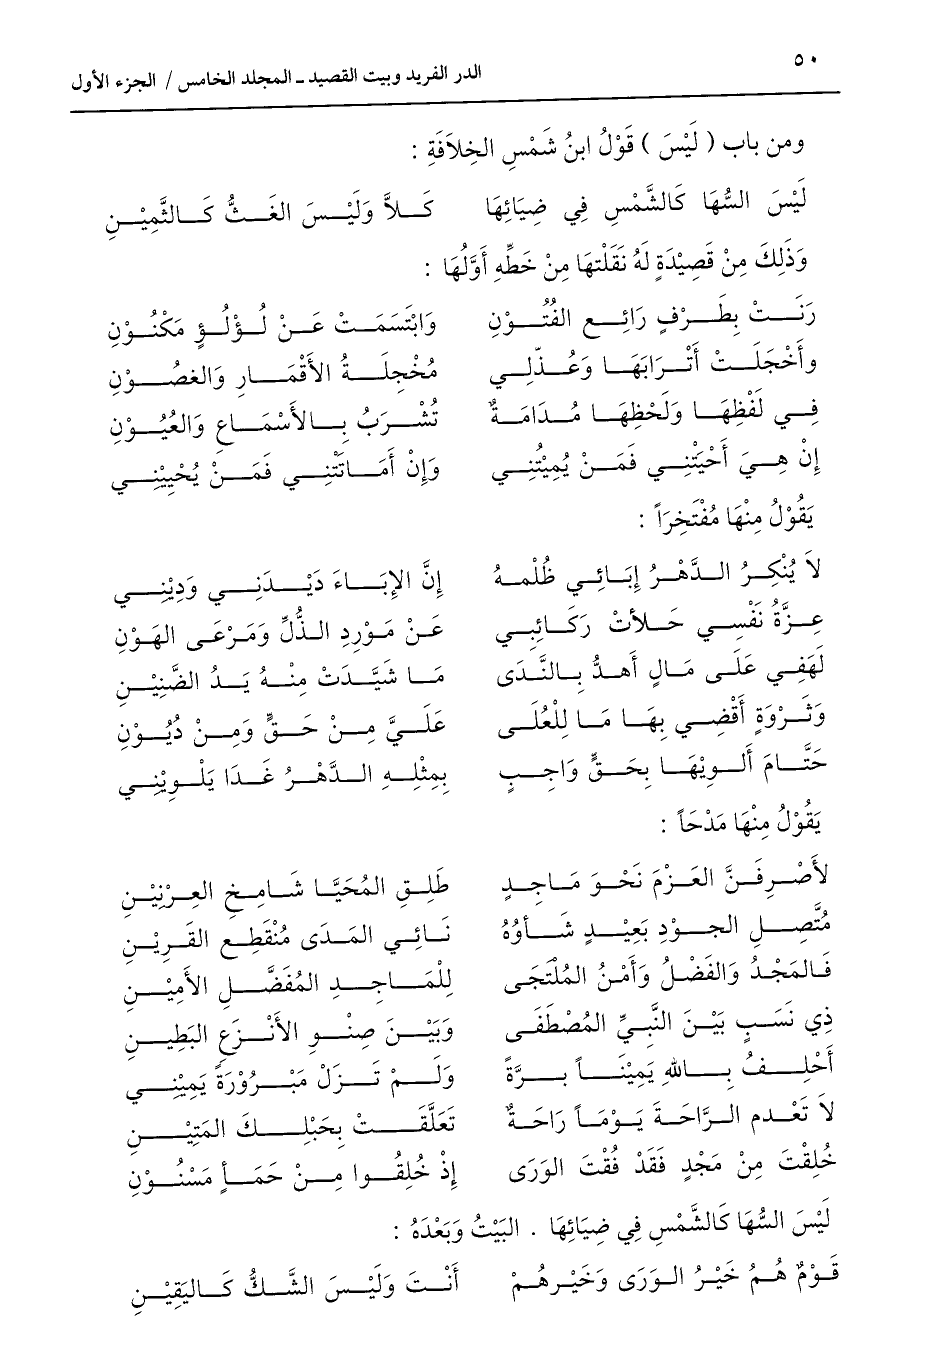 ٥٠
الدر الفريد وبيت القصيد ـ المجلد الخامس / الجزء الأول
ومن باب ( لَيْسَ ) قَوْلُ ابنُ شَمْسِ الخِلاَفَةِ :
لَيْسَ السُّهَا كَالشَّمْسِ فِي ضِيَائِهَا كَلاَّ وَلَيْسَ الغَثُّ كَالثَّمِيْنِ
وَذَلِكَ مِنْ قَصِيْدَةٍ لَهُ نَقَلْتهَا مِنْ خَطِّهِ أَوَّلُهَا :
رَنَتْ بِطَرْفٍ رَائِعِ الفُتُوْنِ وَابْتَسَمَتْ عَنْ لُؤْلُؤٍ مَكْنُوْنِ
وأَخْجَلَتْ أَتْرَابَهَا وَعُذَّلِي مُخْجِلَةُ الأَقْمَارِ وَالغصُوْنِ
فِي لَفْظِهَا وَلَحْظِهَا مُدَامَةٌ تُشْرَبُ بِالأَسْمَاعِ وَالعُيُوْنِ
إِنْ هِيَ أَحْيَتْنِي فَمَنْ يُمِيْتُنِي وَإِنْ أَمَاتَتْنِي فَمَنْ يُحْيِيْنِي
يَقُوْلُ مِنْهَا مُفْتَخِرَاً :
لاَ يُنْكِرُ الدَّهْرُ إِبَائِي ظُلْمهُ إِنَّ الإِبَاءَ دَيْدَنِي وَدِيْنِي
عِزَّةُ نَفْسِي حَلأَتْ رَكَائِبِي عَنْ مَوْرِدِ الذُّلِّ وَمَرْعَى الهَوْنِ
لَهَفِي عَلَى مَالٍ أهدُّ بِالنَّدَى مَا شَيَّدَتْ مِنْهُ يَدُ الضَّنِيْنِ
وَثَرْوَةٍ أَقْضِي بِهَا مَا لِلْعُلَى عَلَيَّ مِنْ حَقٍّ وَمِنْ دُيُوْنِ
حَتَّامَ أَلوِيْهَا بِحَقٍّ وَاجِبٍ بِمِثْلِهِ الدَّهْرُ غَدَا يَلْوِيْنِي
يَقُوْلُ مِنْهَا مَدْحَاً :
لأَصْرِفَنَّ العَزْمَ نَحْوَ مَاجِدٍ طَلِقِ المُحَيَّا شَامِخِ العِرْنَيْنِ
مُتَّصِلِ الجوْدِ بَعِيْدٍ شَأوُهُ نَائِي المَدَى مُنْقَطِعِ القَرِيْنِ
فَالمَجْدُ وَالفَضْلُ وَأَمْنُ المُلْتَجَى لِلْمَاجِدِ المُفَضَّلِ الأَمِيْنِ
ذِي نَسَبٍ بَيْنَ النَّبِيِّ المُصْطَفَى وَبَيْنَ صِنْوِ الأَنْزَعِ البَطِيْنِ
أَحْلِفُ بِاللهِ يَمِيْنَاً بِرَّةً وَلَمْ تَزَلْ مَبْرُوْرَةً يَمِيْنِي
لاَ تَعْدم الرَّاحَةَ يَوْمَاً رَاحَةٌ تَعَلَّقَتْ بِحَبْلِكَ المَتِيْنِ
خُلِقْتَ مِنْ مَجْدٍ فَقَدْ فُقْتَ الوَرَى إِذْ خُلِقُوا مِنْ حَمَأٍ مَسْنُوْنِ
لَيْسَ السُّهَا كَالشَّمْسِ فِي ضِيَائِهَا . البَيْتُ وَبَعْدَهُ :
قَوْمٌ هُمُ خَيْرُ الوَرَى وَخَيْرهُمْ أَنْتَ وَلَيْسَ الشَّكُّ كَاليَقِيْنِ